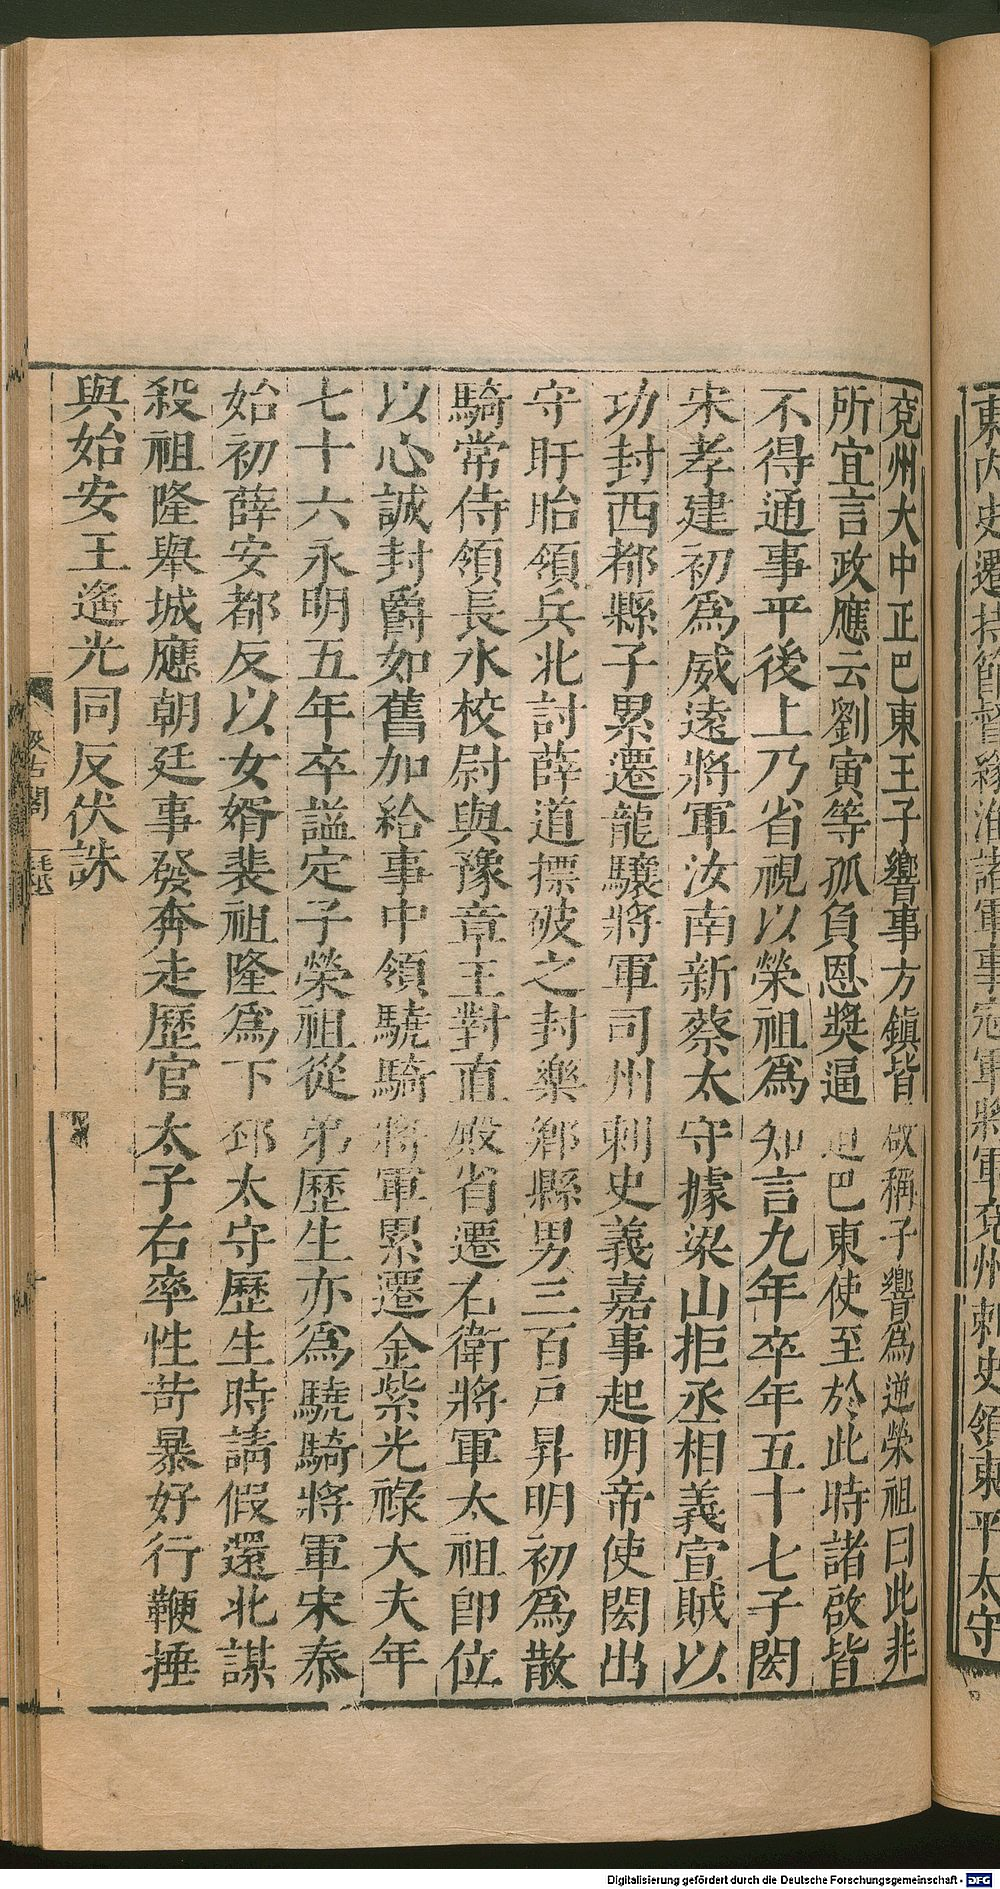 東內史遷持節督緣淮諸軍事冠軍將軍兗州刺史領東平太守
兗州大中正巴東王子響事方鎮皆啟稱子響爲逆榮祖曰此非
所宜言政應云劉寅等孤負恩奬逼迫巴東使至於此時諸啟皆
不得通事平後上乃省視以榮祖爲知言九年卒年五十七子閎
宋孝建初爲威遠將軍汝南新蔡太守據梁山拒丞相義宣賊以
功封西都縣子累遷龍驤將軍司州刺史義嘉事起明帝使閎出
守盱眙領兵北討薛道摽破之封樂鄉縣男三百戶昇明初爲散
騎常侍領長水校尉與豫章王對直殿省遷右衛將軍太祖卽位
以心誠封爵如舊加給事中領驍騎將軍累遷金紫光祿大夫年
七十六永明五年卒謚定子榮祖從弟歷生亦爲驍騎將軍宋泰
始初薛安都反以女婿裴祖隆爲下邳太守歷生時請假還北謀
殺祖隆舉城應朝廷事發奔走歷官太子右率性苛暴好行鞭捶
與始安王遙光同反伏誅
汲古閣
Digitalisierung gefördert durch die Deutsche Forschungsgemeinschaft - DFG